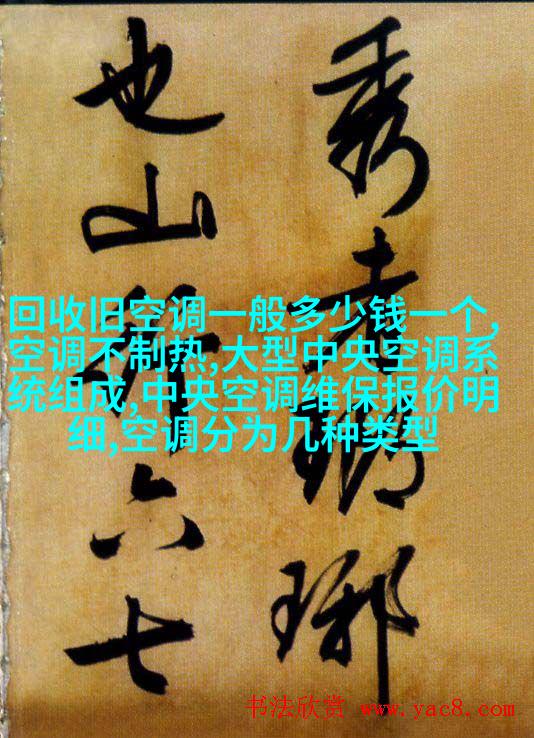 秀者瑯琊
也山行六七
回收旧空调一般多少钱一个,
空调不制热,大型中央空调系
统组成,中央空调维保报价明
细,空调分为几种类型
书法欣赏 www.yac8.com